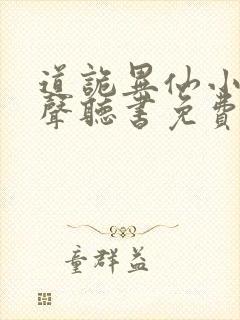 道詭異仙小
聲聽書免費
童群益